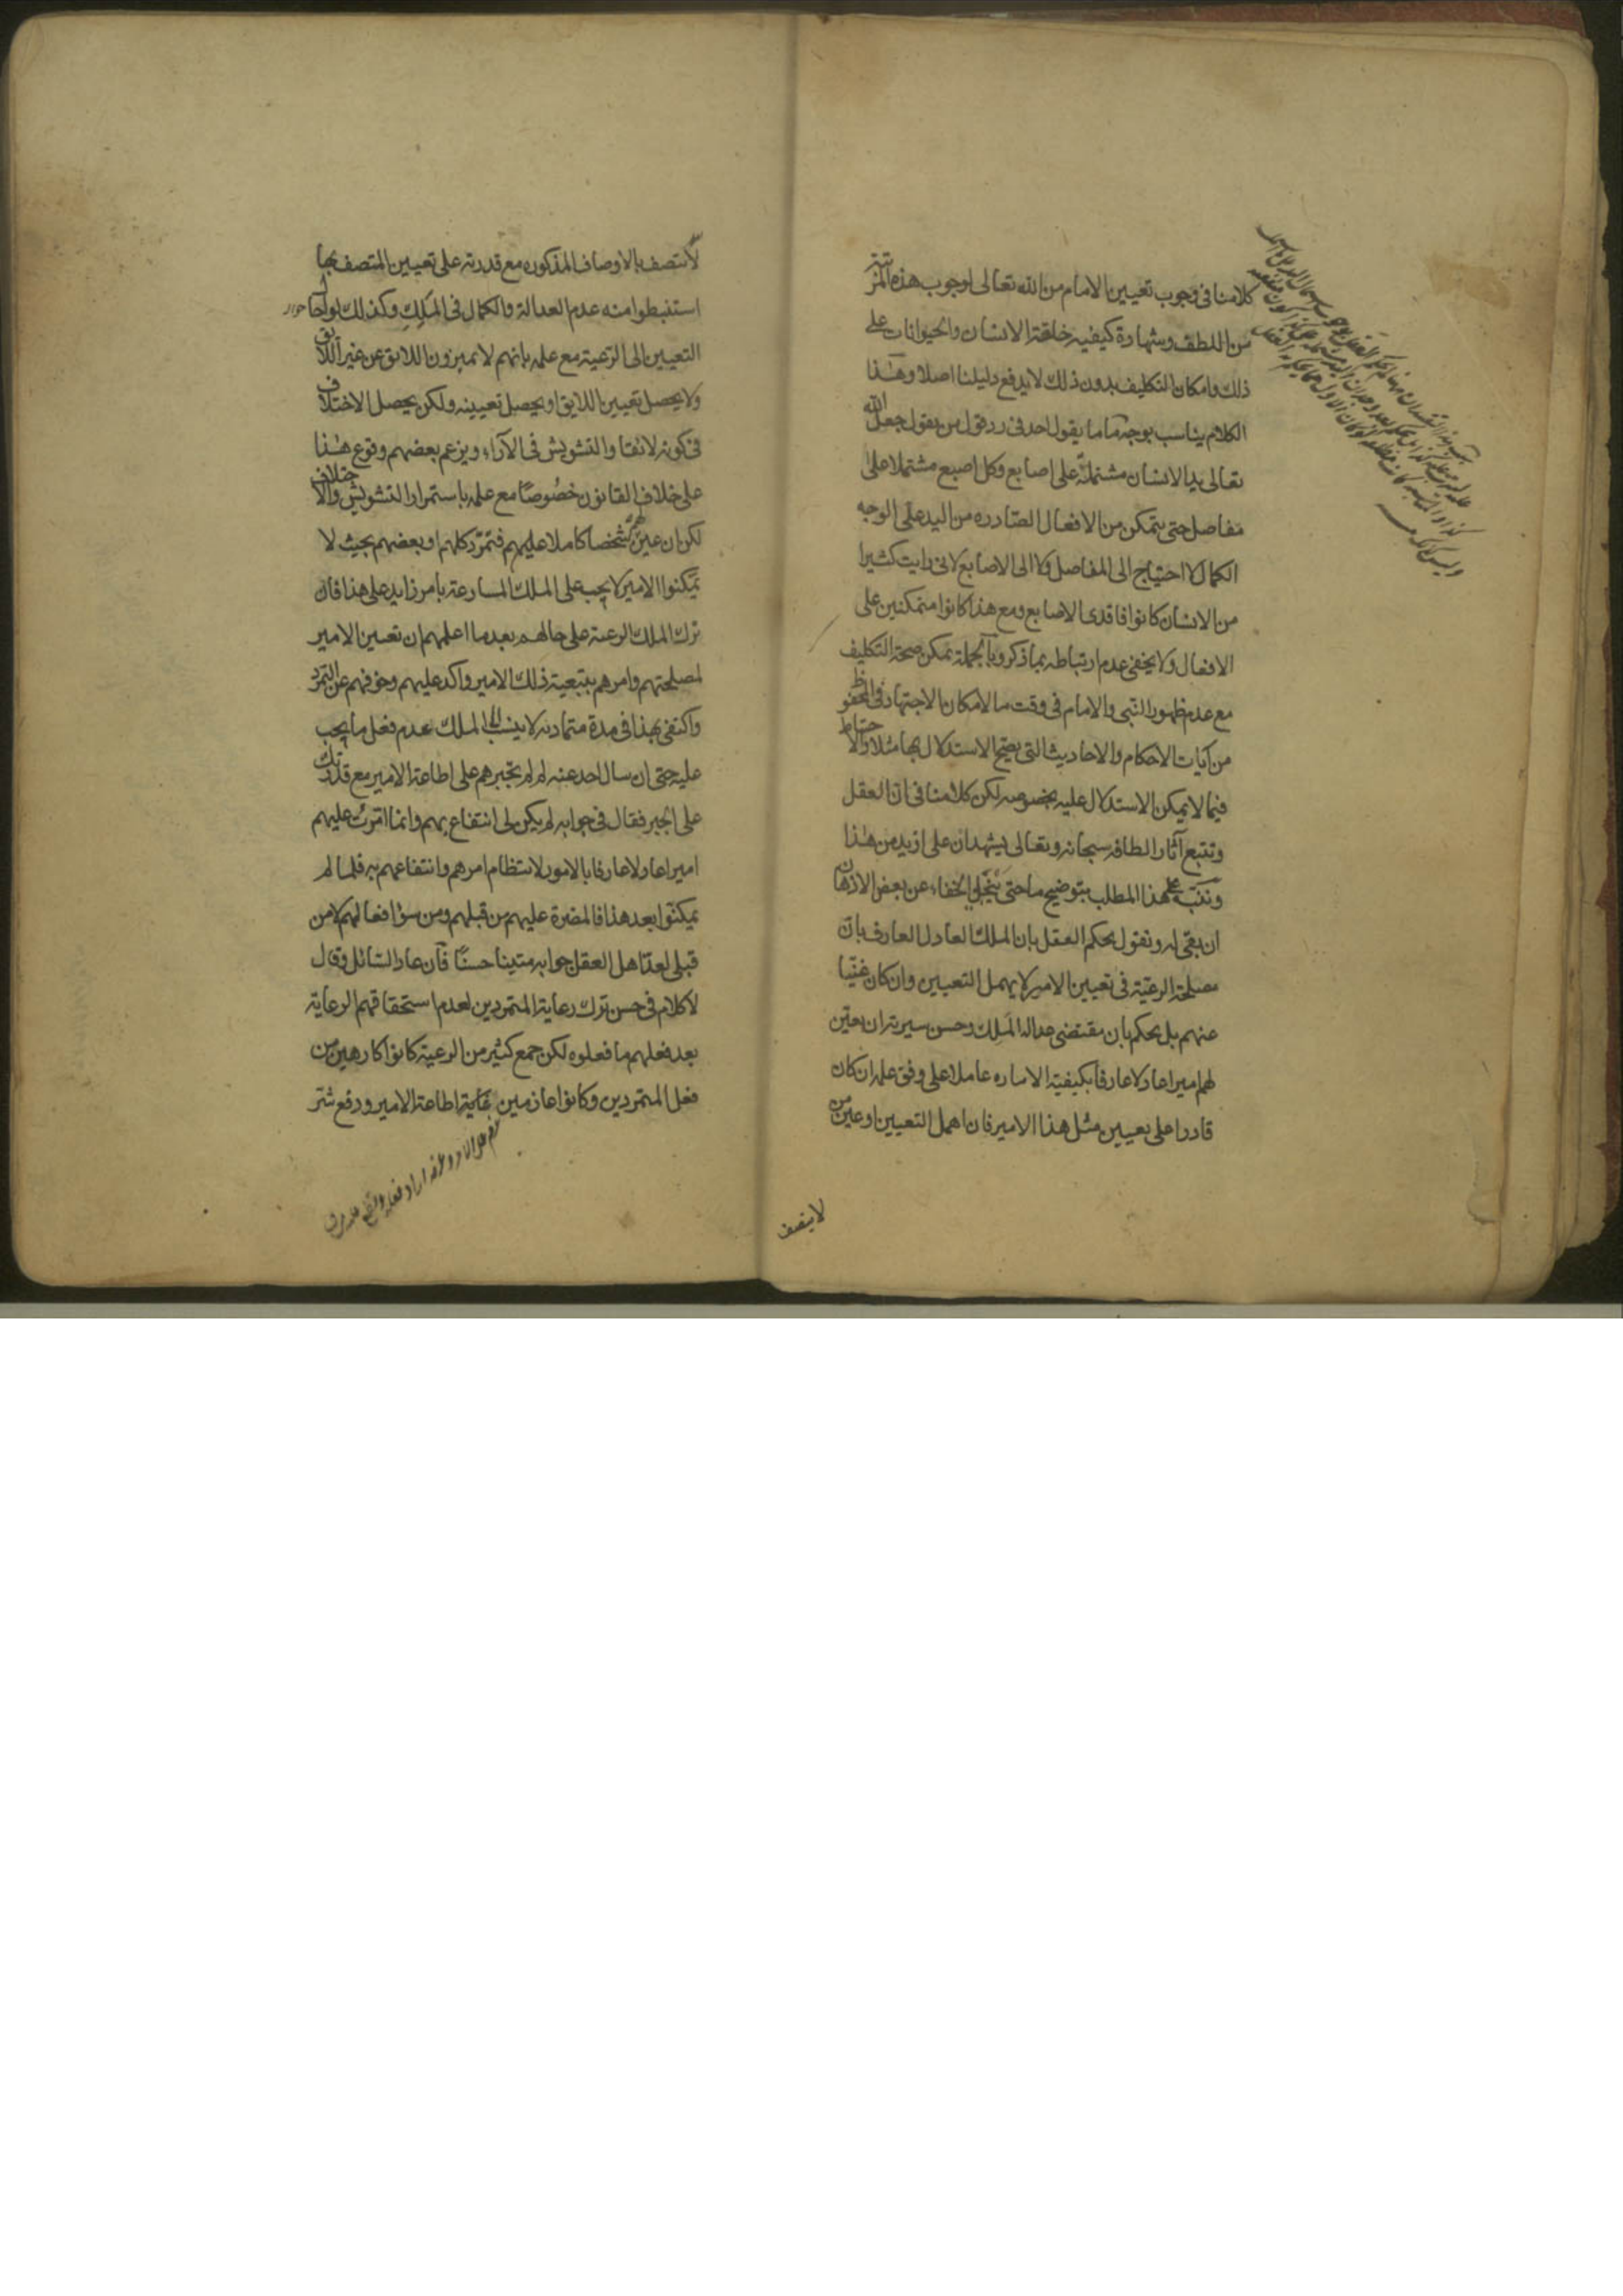 كلامنا فى وجوب تعيين الامام من الله تعالى لوجوب هذه المرتبة
من اللطف وشهادة كيفية خلقة الانسان والحيوانات على
ذلك وامكان التكليف بدون ذلك لا يدفع دليلنا اصلا وهذا
الكلام يناسب بوجه ما ما يقول احد فى رد قول من يقول جعل الله
تعالى يد الانسان مشتملة على اصابع وكل اصبع مشتملا على
مفاصل حتى يتمكن من الافعال الصادره من اليد على الوجه
الكمال لا احتياج الى المفاصل ولا الى الاصابع لانى رايت كثيرا
من الانسان كانوا فاقدى الاصابع ومع هذا كانوا متمكنين على
الافعال ولا يخفى عدم ارتباطه بما ذكر وبالجملة يمكن صحة التكليف
مع عدم ظهور النبى والامام فى وقت ما لامكان الاجتهاد فى المحفوظ
من آيات الاحكام والاحاديث التى يصح الاستدلال بها مثلا والاحتياط
فيما لا يمكن الاستدلال عليه بخصوصه لكن كلامنا فى ان العقل
وتتبع آثار الطافه سبحانه وتعالى يشهدان على ازيد من هذا
وننبه على هذا المطلب بتوضيح ما حتى ينجلى الخفاء عن بعض الاذهان
ان بقى له ونقول يحكم العقل بان الملك العادل العارف بان
مصلحة الرعية فى تعيين الامير لا يهمل التعيين وان كان غنيا
عنهم بل يحكم بان مقتضى عدالة الملك وحسن سيرته ان يعين
لهم اميرا عادلا عارفا بكيفية الاماره عاملا على وفق علمه ان كان
قادرا على تعيين مثل هذا الامير فان اهمل التعيين او عين من
لا يتصف
لا يتصف بالاوصاف المذكوره مع قدرته على تعيين المتصف بها
استنبطوا منه عدم العدالة والكمال فى الملك وكذلك لو احال
التعيين الى الرعية مع علمه بانهم لا يميزون اللايق عن غير اللايق
ولا يحصل تعيين اللايق او يحصل تعيينه ولكن يحصل الاختلاف
فى كونه لائقا والتشويش فى الآراء ويزعم بعضهم وقوع هذا
على خلاف القانون خصوصا مع علمه باستمرار التشويش والاختلاف
لكن ان عين لهم شخصا كاملا عليهم فتمرد كلهم او بعضهم بحيث لا
يمكنوا الامير لا يجب على الملك المسارعة بامر زايد على هذا فان
ترك الملك الرعية على حالهم بعد ما اعلمهم ان تعيين الامير
لمصلحتهم وامرهم بتبعية ذلك الامير واكد عليهم وخوفهم عن التمرد
واكتفى بهذا فى مدة متمادية لا ينسب الى الملك عدم فعل ما يجب
عليه حتى ان سال احد عنه لم لم تجبرهم على اطاعة الامير مع قدرتك
على الجبر فقال فى جوابه لم يكن لى انتفاع بهم وانما امرت عليهم
اميرا عادلا عارفا بالامور لانتظام امرهم وانتفاعهم به فلما لم
يمكنوا بعد هذا فالمضرة عليهم من قبلهم ومن سوء افعالهم لا من
قبلى لعد اهل العقل جوابه متينا حسنا فان عاد السائل وقال
لا كلام فى حسن ترك رعاية المتمردين لعدم استحقاقهم الرعاية
بعد فعلهم ما فعلوه لكن جمع كثير من الرعية كانوا كارهين من
فعل المتمردين وكانوا عازمين غاية اطاعة الامير ودفع شر